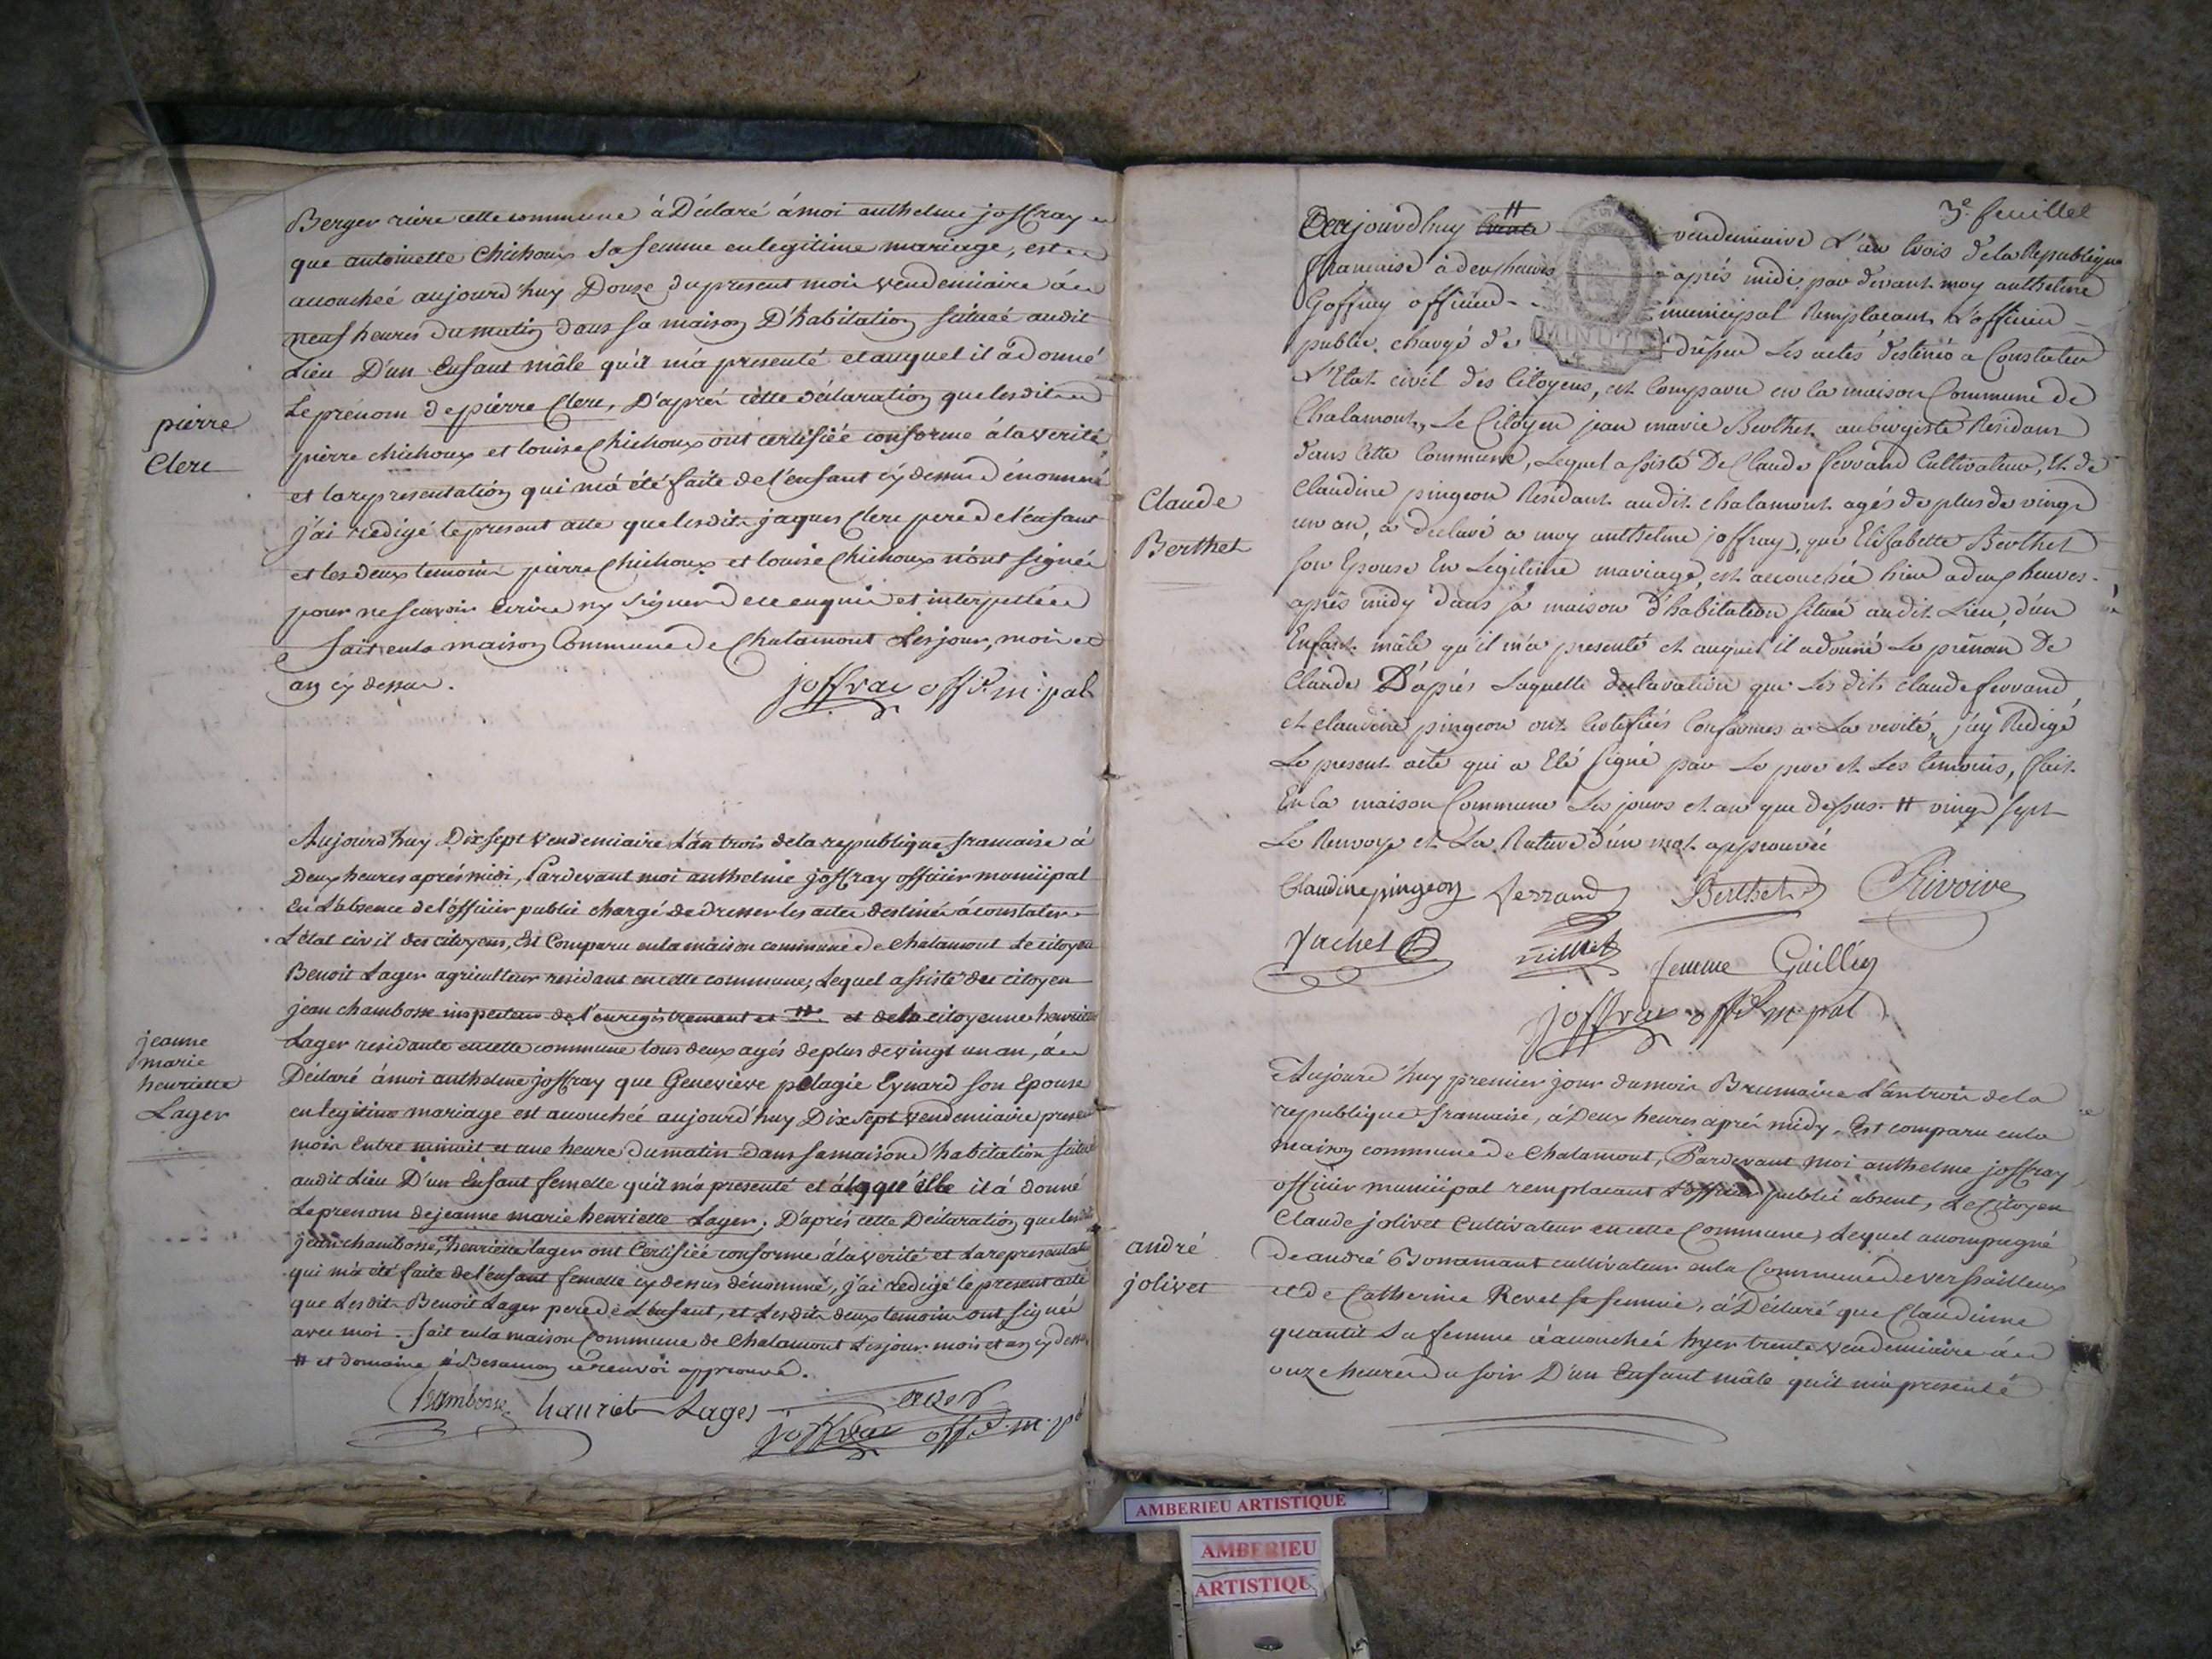 Berger riere cette commune à Déclaré à moi anthelme joffray
que antoinette Chichoux sa femme en legitime mariage, est
accouchéé aujourd'huy Douze du present mois vendemiaire à
neuf heures du matin dans sa maison D'habitation scituéé audit
Lieu D'un Enfant mâle qu'il m'a presenté et auquel il à donné
Le prénom de pierre Clerc, D'aprés cette déclaration que lesdits
pierre chichoux et louise Chichoux ont certifiéé conforme à la verité
et la representation qui m'a été faite de l'enfant cy dessus dénommé
j'ai redigé le present acte que lesdits jaques Clerc pere de l'enfant
et les deux temoins pierre Chichoux et louise Chichoux n'ont signés
pour ne scavoir Ecrire ny signer de ce enquis et interpellés
fait en la maison Commune de Chalamont Les jour, mois et
an cy dessus.
joffray off.r m.pal
pierre
Clerc
Aujourd'huy Dix sept vendemiaire L'an trois de la republique francaise à
Deux heures aprés midi, Pardevant moi anthelme joffray officier municipal
En L'absence de l'officier public chargé de dresser les actes destinés à constater
L'état civil des citoyens, Est Comparu en la maison commune de chalamont Le citoyen
Benoit Lager agriculteur residant en cette commune, Lequel assisté du citoyen
jean chambosse inspecteur de l'enregistrement et # et de la citoyenne henriette
Lager residante en cette commune tous deux agés de plus de vingt un an, à
Déclaré à moi anthelme joffray que Genevieve pelagie Eynard son Epouse
en legitime mariage est accouchée aujourd'huy Dix sept vendemiaire present
mois Entre minuit et une heure du matin dans sa maison d'habitation scituée
audit Lieu D'un Enfant femelle qu'il m'a presenté et à laqu'elle il à donné
Le prenom de jeanne marie henriette Lager; D'aprés cette Déclaration que lesdits
jean chambosse, henriette lager ont Certifiéé conforme à la verité et La representation
qui m'a été faite de l'enfant femelle cy dessus dénommé, j'ai redigé le present acte
que Lesdits Benoit Lager pere de L'enfant, et Lesdits deux temoins ont signés
avec moi. fait en la maison Commune de Chalamont Les jour mois et an cy dessus
# et domaine à Besancon ce renvoi approuvé.
Chambosse hanriet Lager Lager
joffray off.r m.pal
jeanne
marie
henriette
Lager
3.e feuillet
Aujourdhuy trente # vendemiaire L'an trois de la Republique
francaise à deux heures aprés midi, par devant moy anthelme
Goffray officier municipal Remplacant L'officier
public chargé de dresser Les actes destinés a Constater
MINUTE
L'Etat civil des Citoyens, est Comparu en la maison Commune de
Chalamont, Le Citoyen jean marie Berthet aubergiste Résidant
dans Cette Commune, Lequel assisté De Claude ferrand Cultivateur, Et de
Claudine pingeon Résidant audit chalamont agés de plus de vingt
un an, a declaré a moy anthelme joffray, que Elisabette Berthet
son Epouse En Legitime mariage, est accouchée hier a deux heures
aprés midy dans sa maison d'habitation située audit Lieu, d'un
Enfant mâle qu'il m'a presenté et auquel il a donné Le prénom De
Claude D'aprés Laquelle declaration que Les dits claude ferrand
et claudine pingeon ont Certifiés Conformes a La verité, j'ay Redigé
Le present acte qui a Eté signé par Le pere et Les temoins, fait
En la maison Commune Les jours et an que dessus. # vingt sept
Le Renvoye et La Rature d'un mot approuvée
Claudine pingeon ferrand Berthet Rivoire
Vachet millet femme Guillin
joffray off.r m.pal
Claude
Berthet
Aujourd'huy premier jour du mois Brumaire L'an trois de la
republique francaise, à Deux heures aprés midy, Est comparu en la
maison commune de Chalamont, Pardevant moi anthelme joffray
officier municipal remplacant L'officier public absent, Le Citoyen
Claude jolivet Cultivateur en cette Commune, Lequel accompagné
de andré Bonnamant cultivateur en la Commune de versailleux
et de Catherine Revel sa femme, à Déclaré que Claudinne
quantit Sa femme à accouchéé hyer trente vendemiaire à
onze heures du soir D'un Enfant mâle qu'il m'a presenté
andré
jolivet
AMBERIEU ARTISTIQUE
AMBERIEU
ARTISTIQU